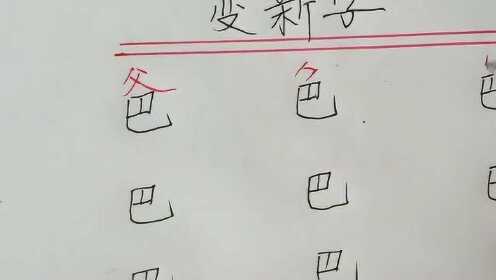 变新字
爸 色
巴 巴